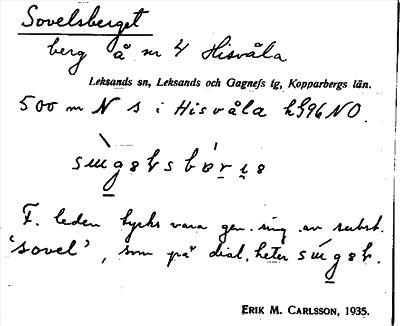 Sovelsberget
berg å nr 4 Hisvåla
Leksands sn, Leksands och Gagnefs tg, Kopparbergs län.
500 m N s i Hisvåla h§96 NO.
F. leden tycks vara gen. sing. av subst.
'sovel', som på dial. heter
ERIK M. CARLSSON, 1935.